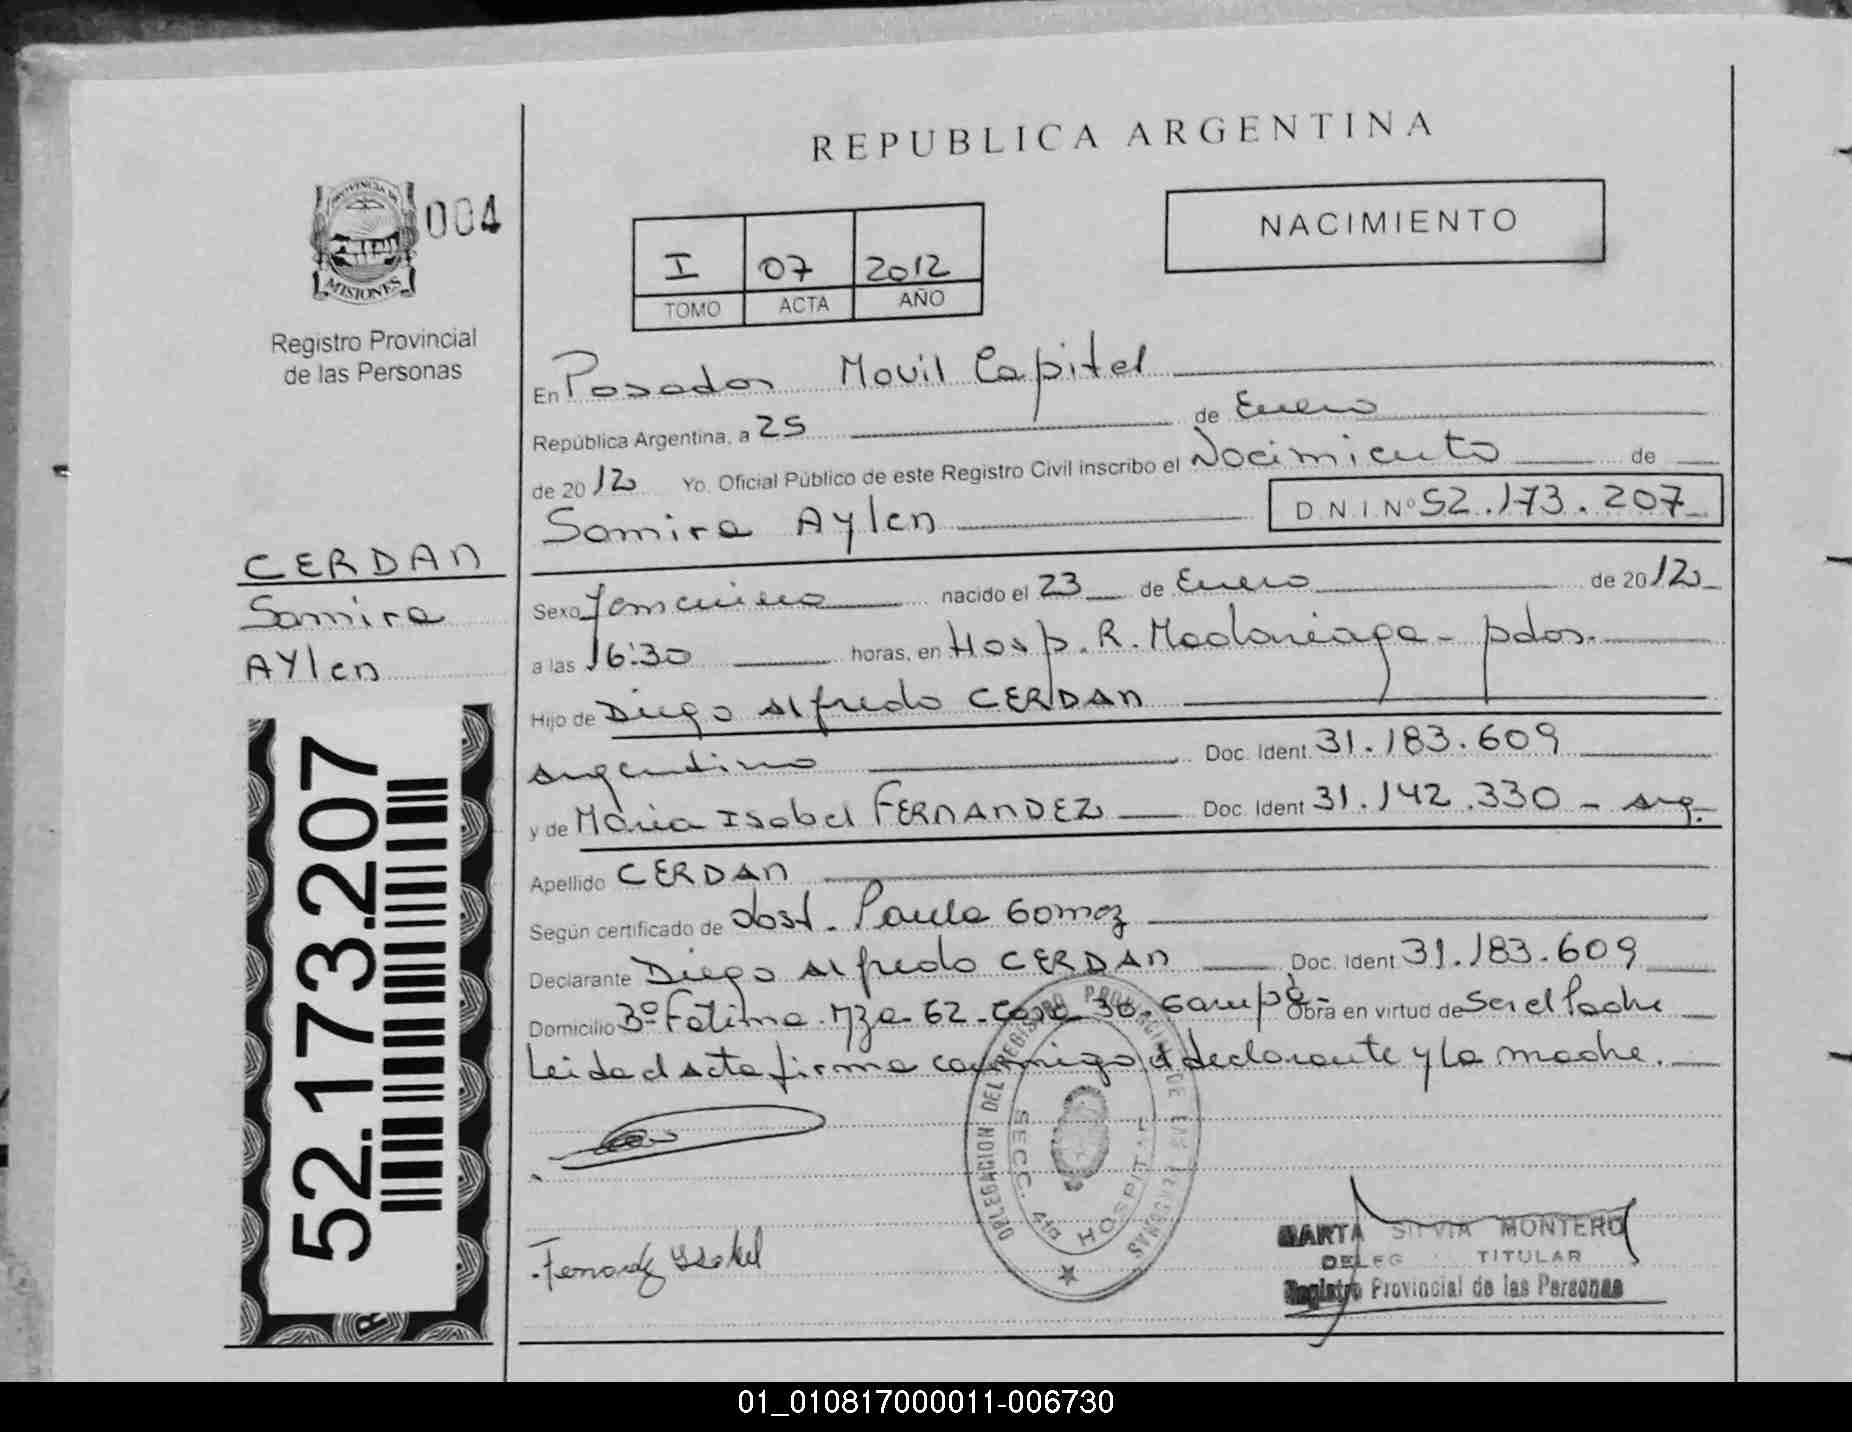 REPUBLICA ARGENTINA
PROVINCIA DE
MISIONES
004
Registro Provincial
de las Personas
NACIMIENTO
I 07 2012
TOMO ACTA AÑO
En Posadas Movil Capital
República Argentina, a 25 de Enero
de 2012 Yo, Oficial Público de este Registro Civil inscribo el Nacimiento de
Samira Aylen D.N.I. Nº 52.173.207
CERDAN
Samira
Aylen
52.173.207
Sexo femenino nacido el 23 de Enero de 2012
a las 16:30 horas, en Hosp. R. Madariaga - pdas.
Hijo de Diego Alfredo CERDAN
argentino Doc. Ident. 31.183.609
y de Maria Isabel FERNANDEZ Doc. Ident 31.142.330 - arg.
Apellido CERDAN
Según certificado de obst. Paula Gomez
Declarante Diego Alfredo CERDAN Doc. Ident 31.183.609
Domicilio Bº Fatima Mza 62 - Casa 30. Garupá - Obra en virtud de Ser el Padre
Leida el Acta firma conmigo el declarante y la madre.
DELEGACION DEL REGISTRO PROVINCIAL DE LAS PERSONAS
SECC. 4ta HOSPITAL
Fernandez Isabel
MARTA SILVIA MONTERO
DELEG TITULAR
Registro Provincial de las Personas
01_010817000011-006730